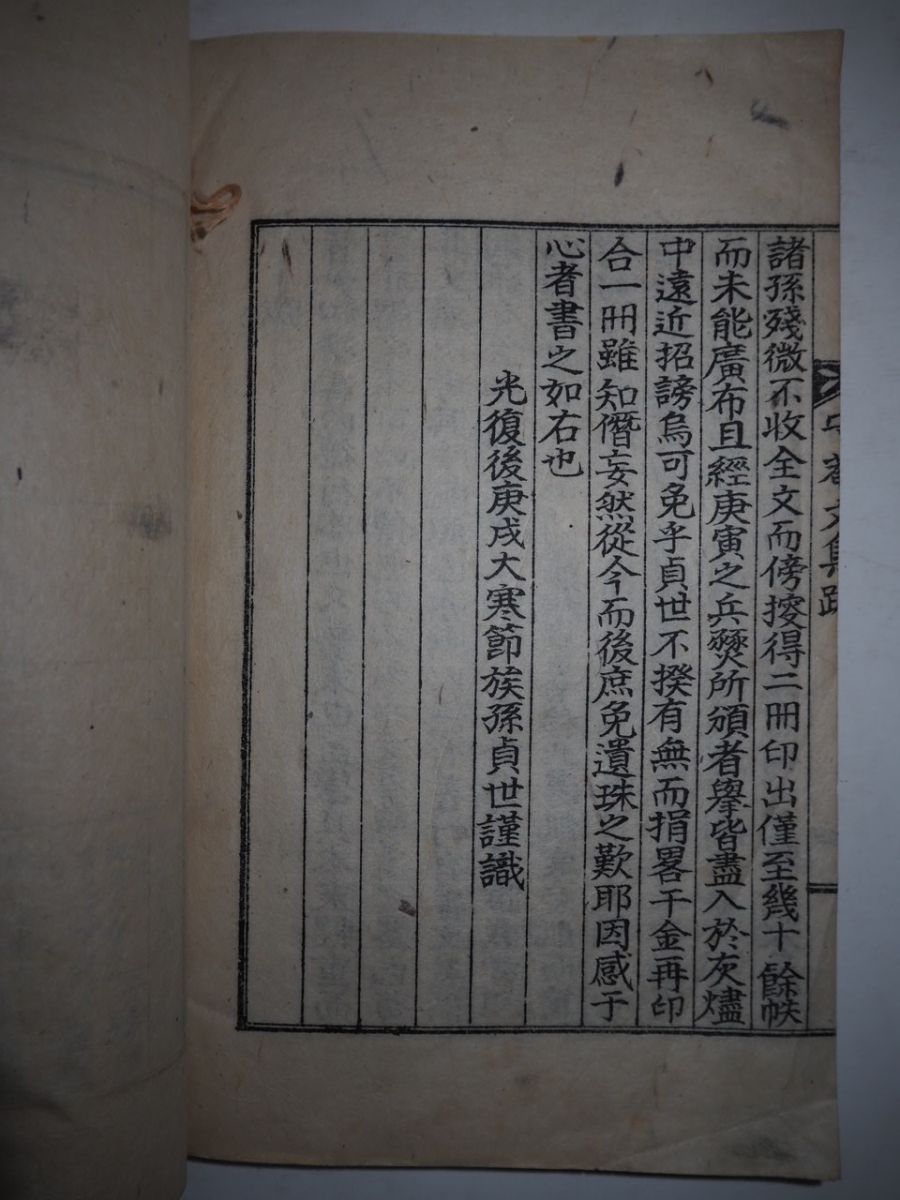 諸孫殘微不收全文而傍搜得二冊印出僅至幾十餘帙
而未能廣布且經庚寅之兵燹所頒者擧皆盡入於灰燼
中遠近招謗烏可免乎貞世不揆有無而捐畧干金再印
合一冊雖知僭妄然從今而後庶免遺珠之歎耶因感于
心者書之如右也
光復後庚戌大寒節族孫貞世謹識
文集跋